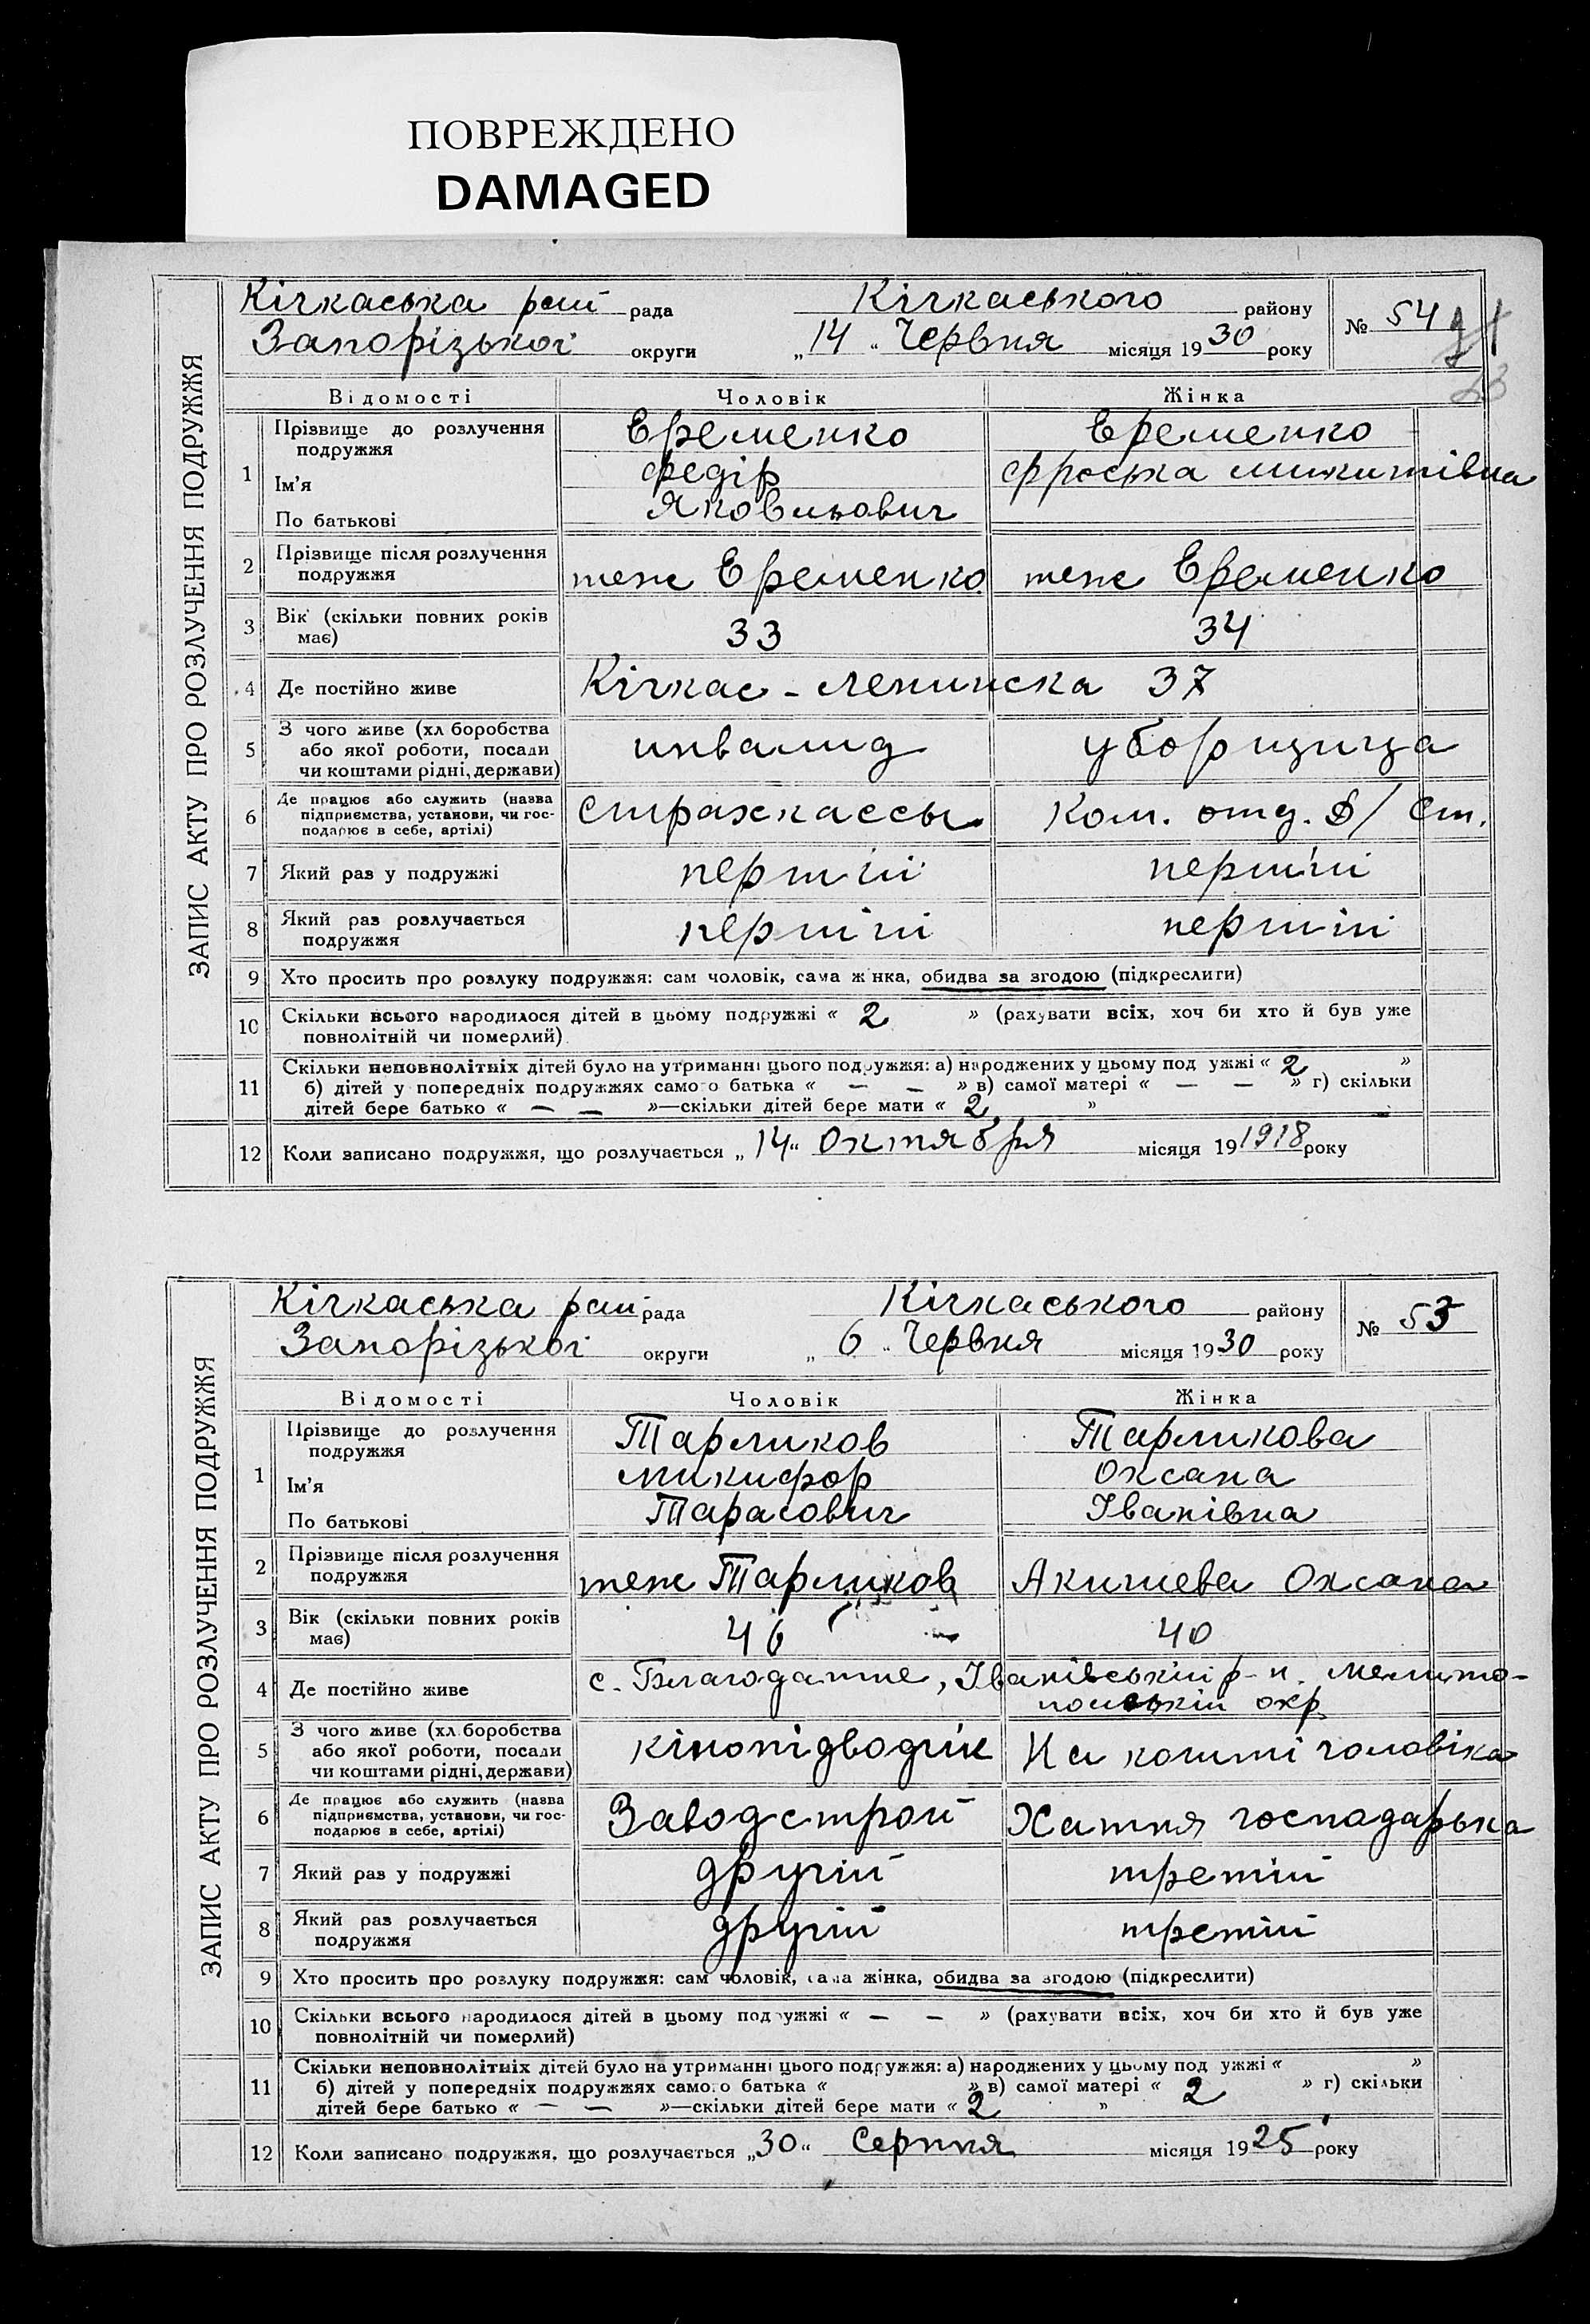 ПОВРЕЖДЕНО
DAMAGED
ЗАПИС АКТУ ПРО РОЗЛУЧЕННЯ ПОДРУЖЖЯ
Кічкаська рай рада Кічкаського району № 54
Запорізької округи „14“ Червня місяця 1930 року
Відомості Чоловік Жінка
1 Прізвище до розлучення подружжя Еременко Еременко
Ім'я Федір Фроська Микитівна
По батькові Яковльович
2 Прізвище після розлучення подружжя теж Еременко теж Еременко
3 Вік (скільки повних років має) 33 34
4 Де постійно живе Кічкас - Ленинска 37
5 З чого живе (хл боробства або якої роботи, посади чи коштами рідні, держави) инвалид уборщица
6 Де працює або служить (назва підприємства, установи, чи господарює в себе, артілі) Страхкассы Ком. отд. Д/Ст.
7 Який раз у подружжі перший перший
8 Який раз розлучається подружжя перший перший
9 Хто просить про розлуку подружжя: сам чоловік, сама жінка, обидва за згодою (підкреслити)
10 Скільки всього народилося дітей в цьому подружжі « 2 » (рахувати всіх, хоч би хто й був уже
повнолітній чи померлий)
11 Скільки неповнолітніх дітей було на утриманні цього подружжя: а) народжених у цьому под ужжі « 2 »
б) дітей у попередніх подружжях самого батька « — — » в) самої матері « — — » г) скільки
дітей бере батько « — — »—скільки дітей бере мати « 2 »
12 Коли записано подружжя, що розлучається „14“ Октября місяця 191918 року
ЗАПИС АКТУ ПРО РОЗЛУЧЕННЯ ПОДРУЖЖЯ
Кічкаська рай рада Кічкаського району № 53
Запорізької округи „6“ Червня місяця 1930 року
Відомості Чоловік Жінка
1 Прізвище до розлучення подружжя Тарликов Тарликова
Ім'я Микифор Оксана
По батькові Тарасович Іванівна
2 Прізвище після розлучення подружжя теж Тарликов Оксана
3 Вік (скільки повних років має) 46 40
4 Де постійно живе с. Благодатне, Іванівський р-н. Мелито-
польській окр.
5 З чого живе (хл.боробства або якої роботи, посади чи коштами рідні, держави) кінопідводчік На кошті чоловіка
6 Де працює або служить (назва підприємства, установи, чи господарює в себе, артілі) Заводстрой Хатня господарька
7 Який раз у подружжі другій третій
8 Який раз розлучається подружжя другій третій
9 Хто просить про розлуку подружжя: сам чоловік, сама жінка, обидва за згодою (підкреслити)
10 Скільки всього народилося дітей в цьому подружжі « — — » (рахувати всіх, хоч би хто й був уже
повнолітній чи померлий)
11 Скільки неповнолітніх дітей було на утриманні цього подружжя: а) народжених у цьому под ужжі « »
б) дітей у попередніх подружжях самого батька « » в) самої матері « 2 » г) скільки
дітей бере батько « — — »—скільки дітей бере мати « 2 »
12 Коли записано подружжя, що розлучається „30“ Серпня місяця 1925 року